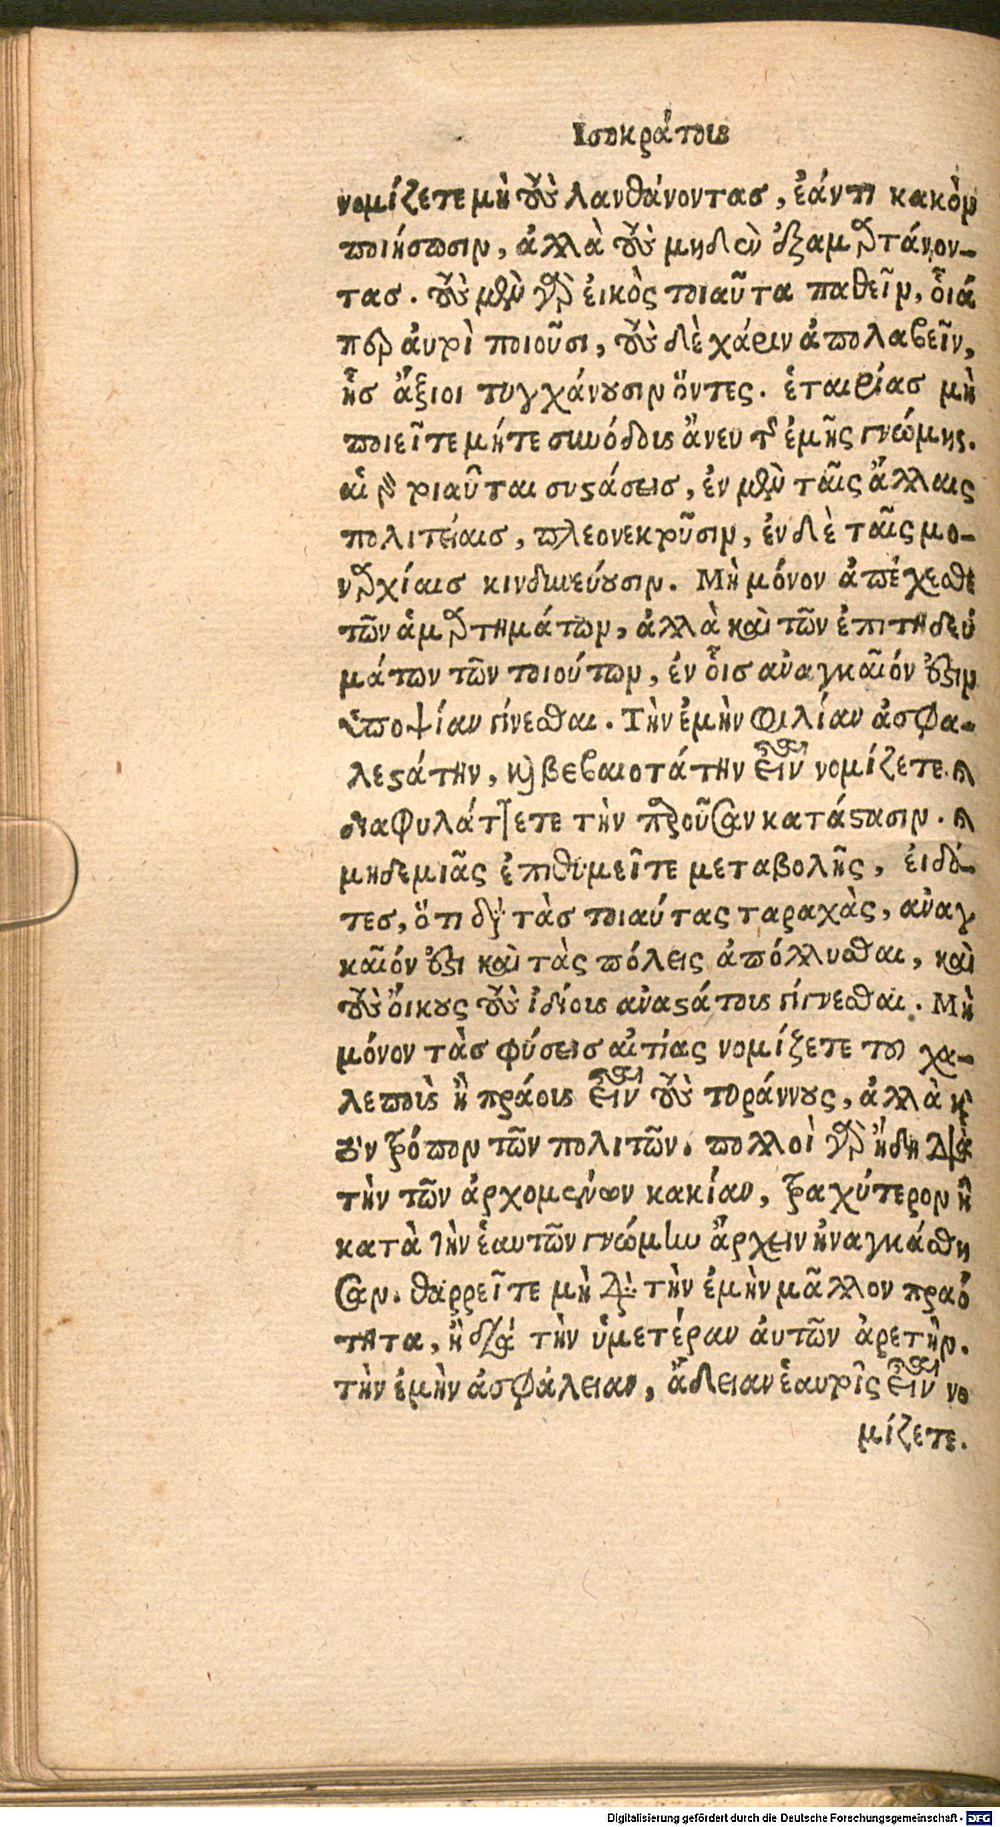 Ισοκράτους
νομίζετε μὴ τοὺς λανθάνοντας, ἐάν τι κακὸν
ποιήσωσιν, ἀλλὰ τοὺς μηδὲν ἐξαμαρτάνον-
τας. τοὺς μὲν γὰρ εἰκὸς τοιαῦτα παθεῖν, οἷά
περ αὐτοὶ ποιοῦσι, τοὺς δὲ χάριν ἀπολαβεῖν,
ἧς ἄξιοι τυγχάνουσιν ὄντες. ἑταιρίας μὴ
ποιεῖτε μήτε συνόδους ἄνευ τῆς ἐμῆς γνώμης.
αἱ γὰρ τοιαῦται συστάσεις, ἐν μὲν ταῖς ἄλλαις
πολιτείαις, πλεονεκτοῦσιν, ἐν δὲ ταῖς μο-
ναρχίαις κινδυνεύουσιν. Μὴ μόνον ἀπέχεσθε
τῶν ἁμαρτημάτων, ἀλλὰ καὶ τῶν ἐπιτηδευ
μάτων τῶν τοιούτων, ἐν οἷς ἀναγκαῖόν ἐστιν
ὑποψίαν γίνεσθαι. Τὴν ἐμὴν φιλίαν ἀσφα-
λεστάτην, καὶ βεβαιοτάτην εἶναι νομίζετε. καὶ
διαφυλάττετε τὴν παροῦσαν κατάστασιν. καὶ
μηδεμιᾶς ἐπιθυμεῖτε μεταβολῆς, εἰδό-
τες, ὅτι διὰ τὰς τοιαύτας ταραχὰς, ἀναγ
καῖόν ἐστι καὶ τὰς πόλεις ἀπόλλυσθαι, καὶ
τοὺς οἴκους τοὺς ἰδίους ἀναστάτους γίγνεσθαι. Μὴ
μόνον τὰς φύσεις αἰτίας νομίζετε τοῦ χα-
λεποὺς ἢ πράους εἶναι τοὺς τυράννους, ἀλλὰ καὶ
τὸν τρόπον τῶν πολιτῶν. πολλοὶ γὰρ ἤδη διὰ
τὴν τῶν ἀρχομένων κακίαν, τραχύτερον ἢ
κατὰ τὴν ἑαυτῶν γνώμην ἄρχειν ἠναγκάσθη
σαν. θαρρεῖτε μὴ διὰ τὴν ἐμὴν μᾶλλον πραό
τητα, ἢ διὰ τὴν ὑμετέραν αὐτῶν ἀρετήν.
τὴν ἐμὴν ἀσφάλειαν, ἄδειαν ἑαυτοῖς εἶναι νο
μίζετε.
Digitalisierung gefördert durch die Deutsche Forschungsgemeinschaft - DFG